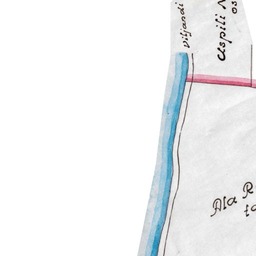 Viljandi
Uspili
os
Ala R